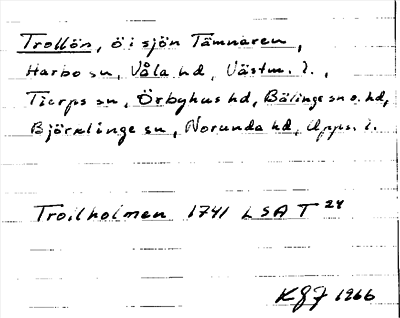 Trollön, ö i sjön Tämnaren,
Harbo sn, Våla hd, Västm. l.,
Tierps sn, Örbyhus hd, Bälinge sn o. hd,
Björklinge sn, Norunda hd, Upps. l.
Troilholmen 1741 LSA T 24
KGJ 1966